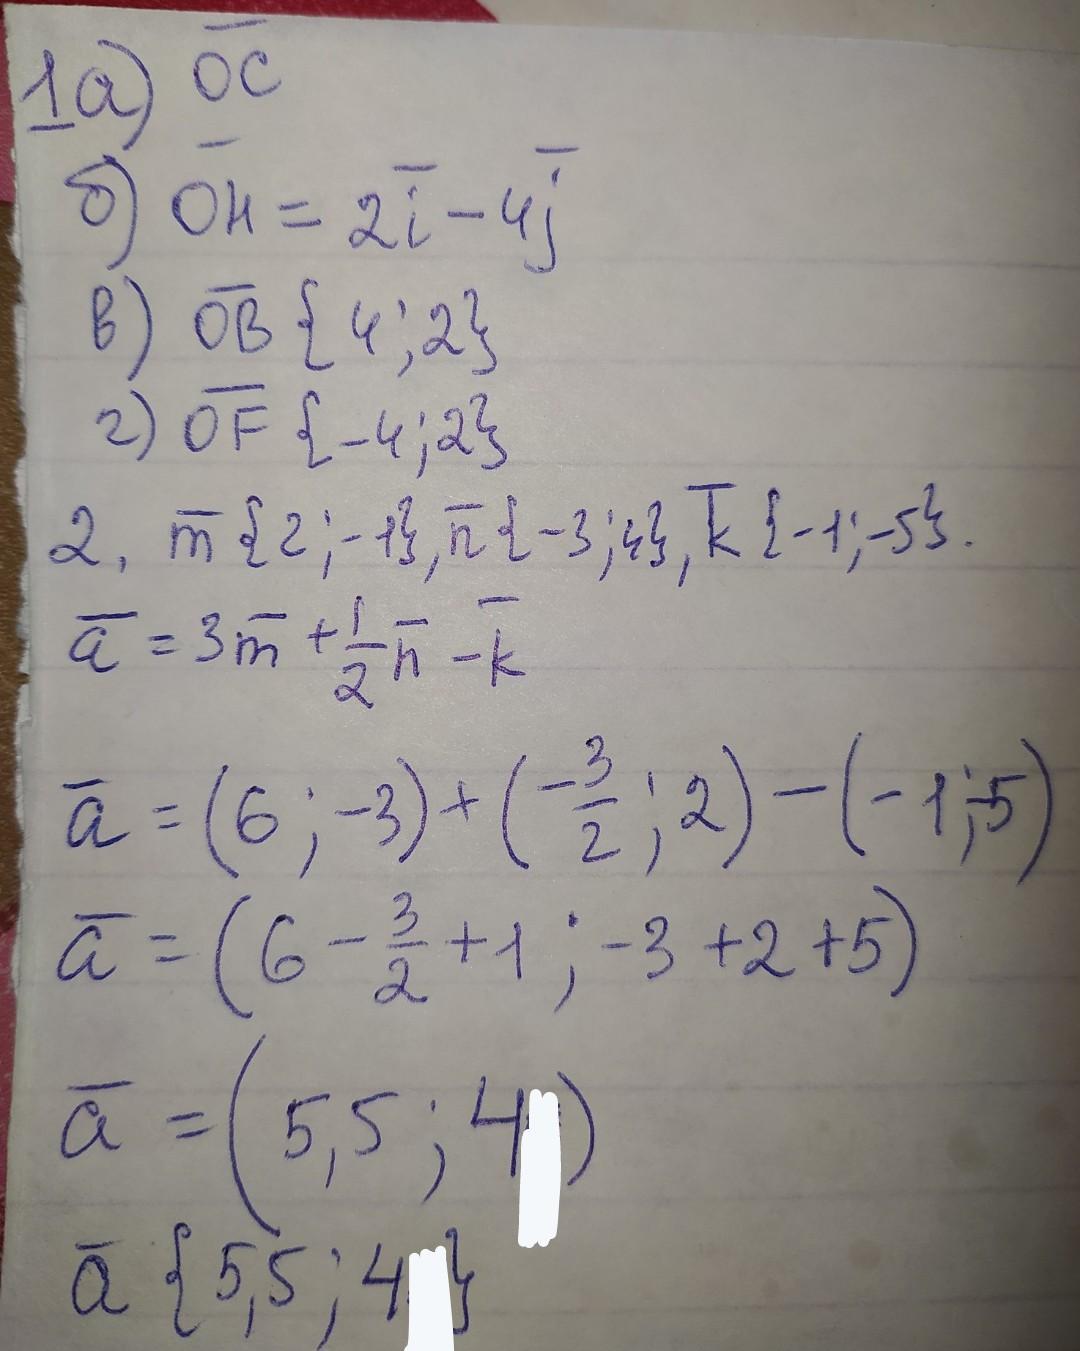 1a) O̅C̅
б) O̅H̅ = 2i̅ - 4j̅
в) O̅B̅ {4;2}
г) O̅F̅ {-4;2}
2. m̅{2;-1}, n̅{-3;4}, k̅{-1;-5}.
a̅ = 3m̅ + 1/2 n̅ - k̅
a̅ = (6;-3) + (-3/2;2) - (-1;-5)
a̅ = (6 - 3/2 + 1; -3 + 2 + 5)
a̅ = (5,5; 4)
a̅ {5,5; 4}